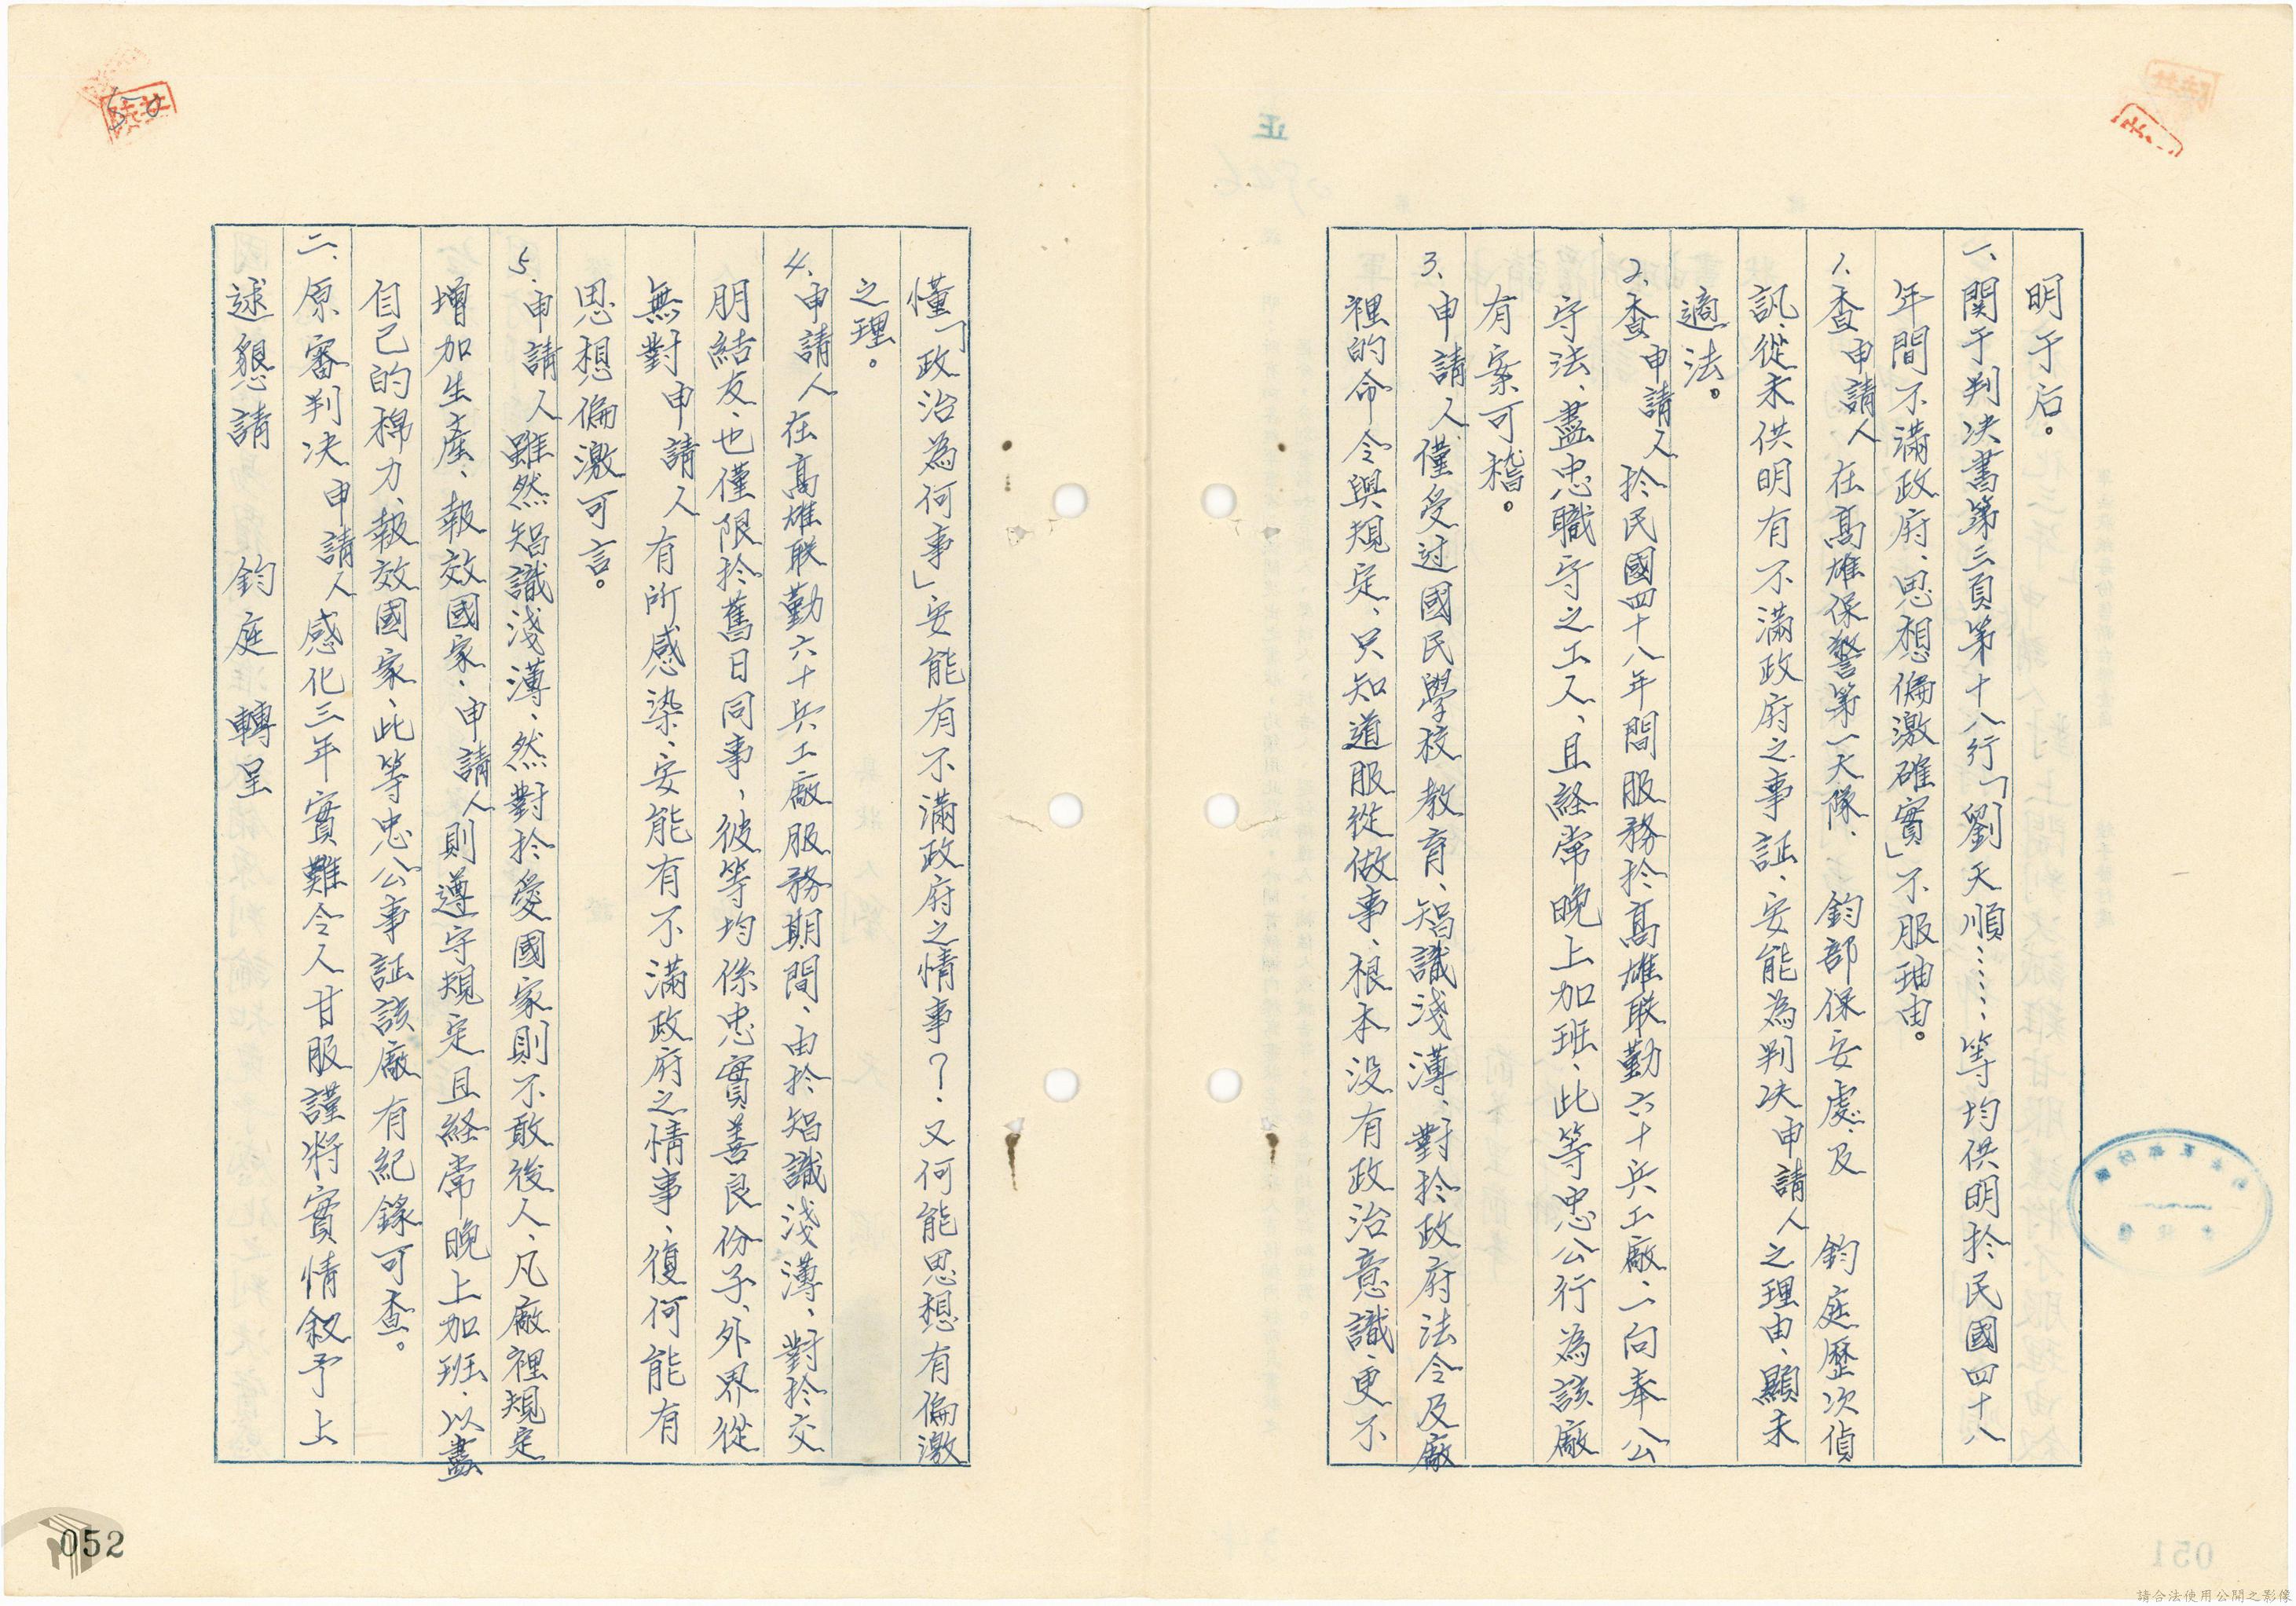 明于后。
一、関于判决書第三頁第十八行「劉天順……等均供明於民國四十八
年間不滿政府、思想偏激確實」不服理由。
1.查申請人在高雄保警第一大隊、鈞部保安處、及鈞庭歷次偵
訊、從未供明有不滿政府之事証、安能為判决申請人之理由、顯未
適法。
2.查申請人於民國四十八年間服務於高雄联勤六十兵工廠、一向奉公
守法、盡忠職守之工人、且経常晚上加班、此等忠公行為該廠
有案可稽。
3.申請人僅受过國民學校教育、智識淺薄、對於政府法令及廠
裡的命令與規定、只知道服從做事、根本没有政治意識、更不
懂「政治為何事」安能有不滿政府之情事？又何能思想有偏激
之理。
4.申請人在高雄联勤六十兵工廠服務期間、由於智識淺薄、對於交
朋結友、也僅限於舊日同事，彼等均係忠實善良份子、外界從
無對申請人有所感染、安能有不滿政府之情事、復何能有
思想偏激可言。
5.申請人雖然智識淺薄、然對於愛國家則不敢後人、凡廠裡規定
增加生產、報效國家、申請人則遵守規定且経常晚上加班、以盡
自己的棉力、報效國家、此等忠公事証該廠有紀錄可查。
二、原審判决申請人感化三年實難令人甘服謹將實情叙予上
述懇請鈞庭轉呈
052
051
正
請合法使用公開之影像